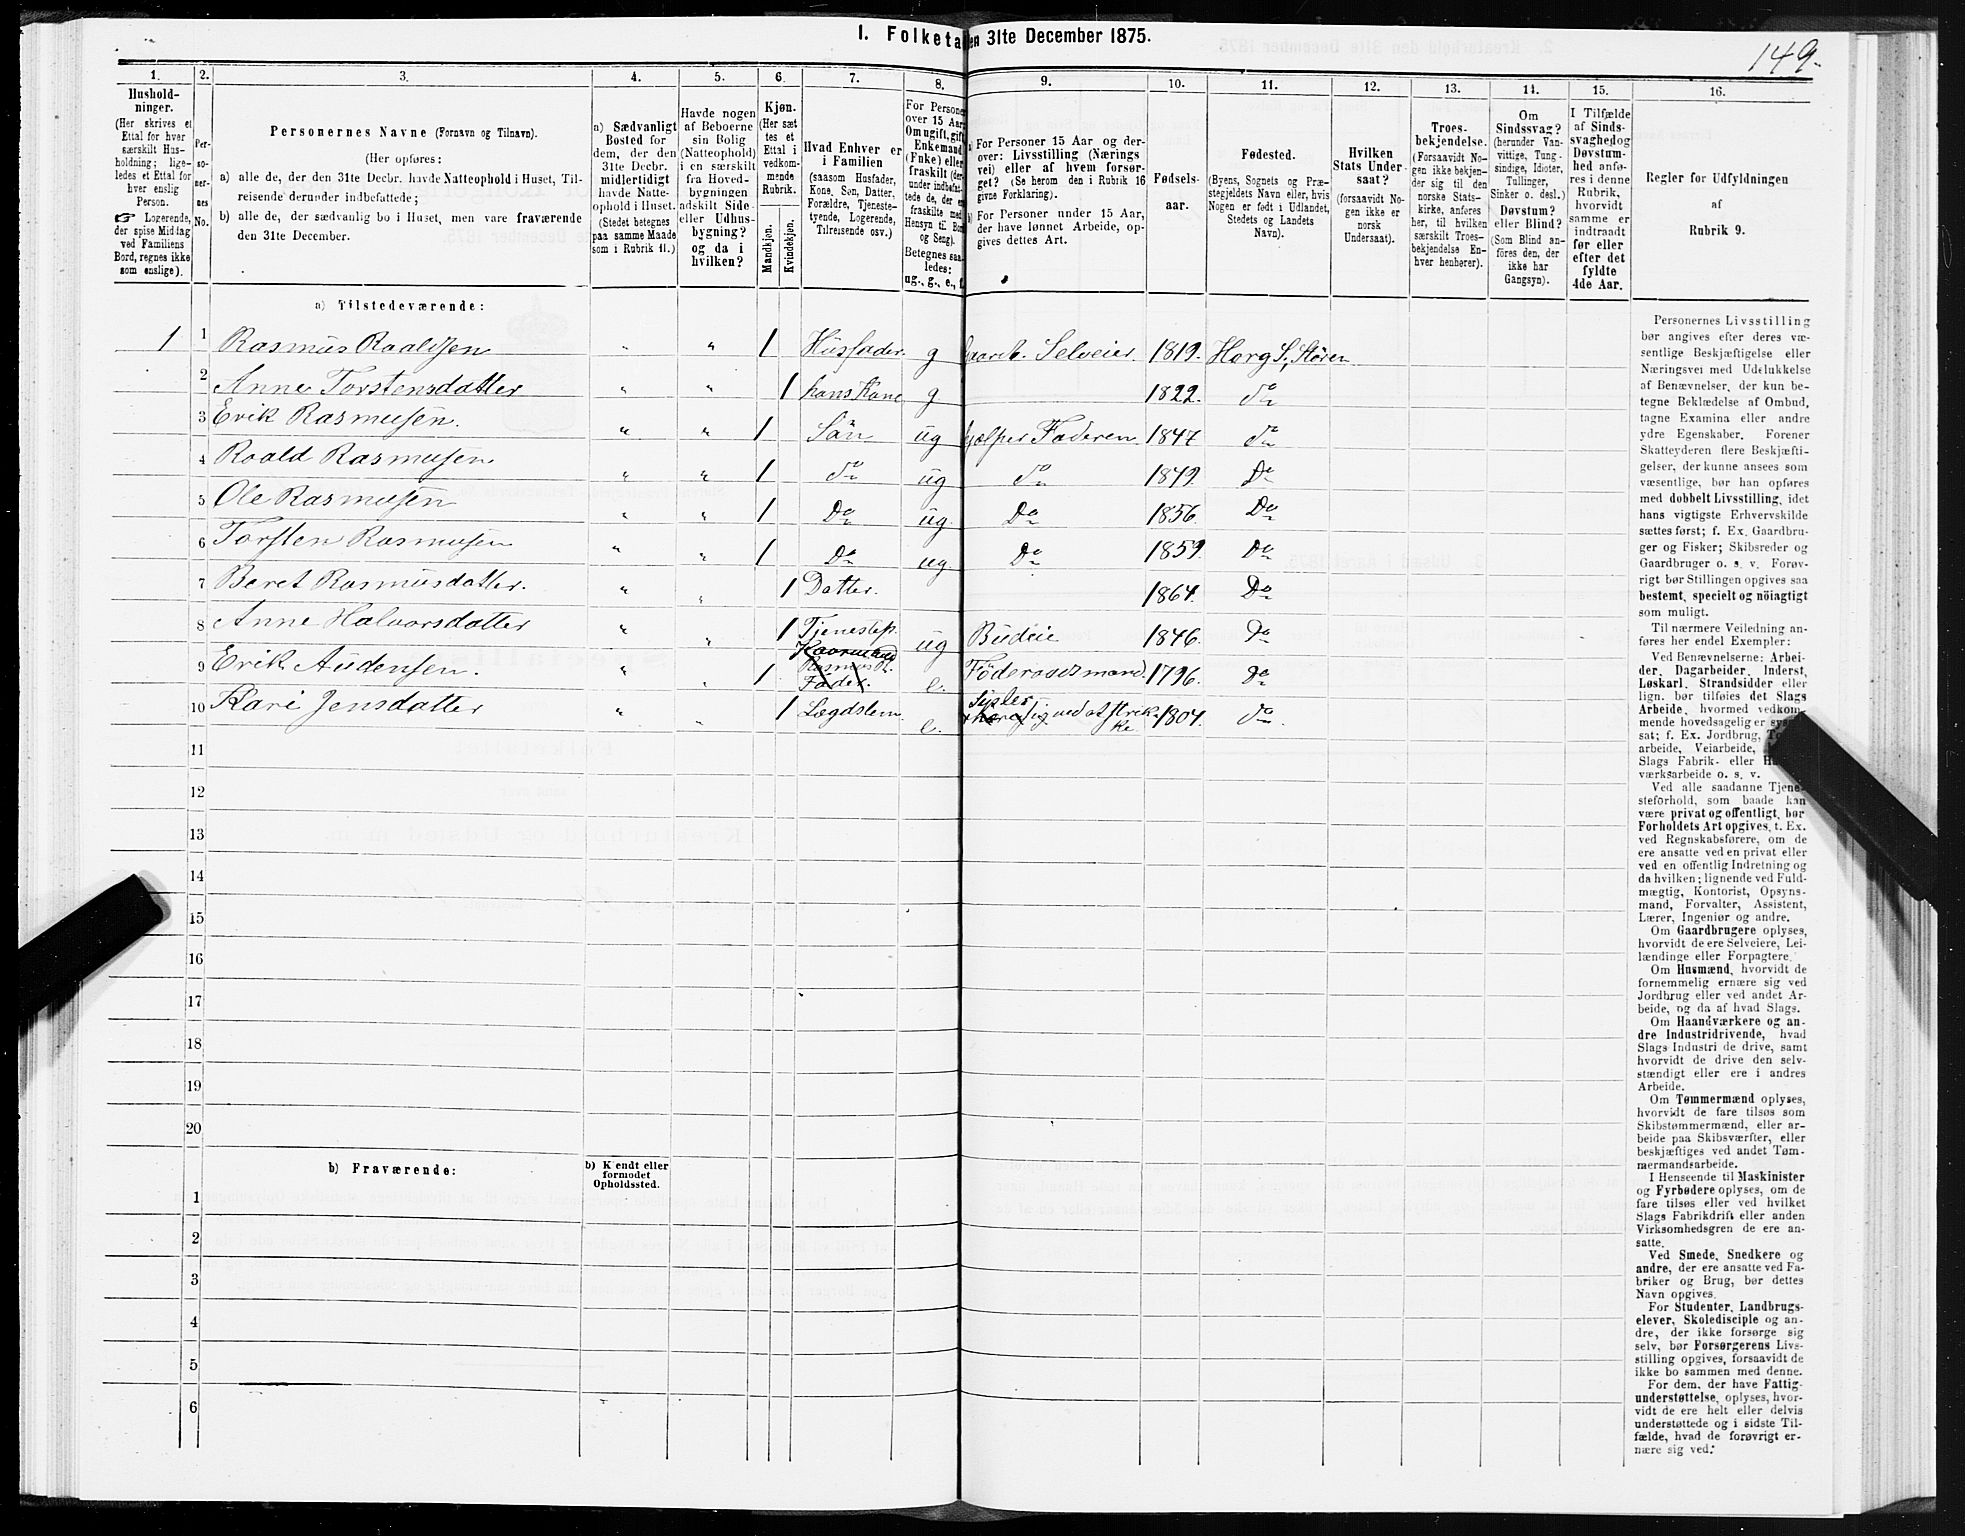 I. Folketa en 31te December 1875.
149.
1. 2. 3. 4. 5. 6. 7. 8. 9. 10. 11. 12. 13. 14. 15. 16.
Hushold-
ninger.
(Her skrives et
Ettal for hver
særskilt Hus-
holdning; lige-
ledes et Ettal for
hver enslig
Person.
☞ Logerende,
der spise Middag
ved Familiens
Bord, regnes ikke
som enslige).
Per-
so-
ner-
nes
No.
Personernes Navne (Fornavn og Tilnavn).
(Her opføres:
a) alle de, der den 31te Decbr. havde Natteophold i Huset, Til-
reisende derunder indbefattede;
b) alle de, der sædvanlig bo i Huset, men vare fraværende
den 31te December.
a) Sædvanligt
Bosted for
dem, der den
31te Decbr.
midlertidigt
havde Natte-
ophold i Huset.
(Stedet betegnes
paa samme Maade
som i Rubrik 11.)
Havde nogen
af Beboerne
sin Bolig
(Natteophold)
i en særskilt
fra Hoved-
bygningen
adskilt Side-
eller Udhus-
bygning?
og da i
hvilken?
Kjøn.
(Her sæt-
tes et
Ettal i
vedkom-
mende
Rubrik.
Mandkjøn.
Kvindekjøn.
Hvad Enhver er
i Familien
(saasom Husfader,
Kone, Søn, Datter,
Forældre, Tjeneste-
tyende, Logerende,
Tilreisende osv.)
For Personer
over 15 Aar:
Om ugift, gift,
Enkemand
(Enke) eller
fraskilt (der-
under indbefat-
tede de, der ere
fraskilte med
Hensyn til Bord
og Seng).
Betegnes saa-
ledes:
ug., g., e., f.
a) For Personer 15 Aar og der-
over: Livsstilling (Nærings-
vei) eller af hvem forsør-
get? (Se herom den i Rubrik 16
givne Forklaring).
b) For Personer under 15 Aar,
der have lønnet Arbeide, op-
gives dettes Art.
Fødsels-
aar.
Fødested.
(Byens, Sognets og Præ-
stegjeldets Navn eller, hvis
Nogen er født i Udlandet,
Stedets og Landets
Navn).
Hvilken
Stats Under-
saat?
(forsaavidt No-
gen ikke er
norsk
Undersaat).
Troes-
bekjendelse.
(Forsaavidt No-
gen ikke bekjen-
der sig til den
norske Stats-
kirke, anføres
her, til hvilken
særskilt Troes-
bekjendelse En-
hver henhører).
Om
Sindssvag?
(herunder Van-
vittige, Tung-
sindige, Idioter,
Tullinger,
Sinker o. desl.)
Døvstum?
eller Blind?
(Som Blind an-
føres den, der
ikke har
Gangsyn).
I Tilfælde
af Sinds-
svaghed og
Døvstum-
hed anfø-
res i denne
Rubrik,
hvorvidt
samme er
indtraadt
før eller
efter det
fyldte
4de Aar.
Regler for Udfyldningen
af
Rubrik 9.
a) Tilstedeværende:
1 1 Rasmus Roaldsen " " 1 Husfader. g Gaardb. Selveier. 1819. Horg S., Støren
2 Anne Torstensdatter " " 1 hans Kone g 1822. do
3 Erik Rasmusen. " " 1 Sön ug hjælper Faderen 1847 do
4 Roald Rasmusen " " 1 do ug do 1849. Do
5 Ole Rasmusen " " 1 Do ug. Do 1856. Do
6 Torsten Rasmusen " " 1 Do ug Do 1859. Do
7 Beret Rasmusdatter. " " 1 Datter. 1864. Do
8 Anne Halvorsdatter " " 1 Tjenestep. ug Budeie 1846. Do
9 Erik Audensen. " " 1 Rasmus R. Fader. e. Föderaadsmand. 1796. do
10 Kari Jensdatter " " 1 Lægdslem e. Sysler med at strik- 1804. do
ke.
11
12
13
14
15
16
17
18
19
20
b) Fraværende:
b) Kjendt eller
formodet
Opholdssted.
1
2
3
4
5
6
Personernes Livsstilling
bør angives efter deres væ-
sentlige Beskjæftigelse eller
Næringsvei med Udelukkelse
af Benævnelser, der kun be-
tegne Beklædelse af Ombud,
tagne Examina eller andre
ydre Egenskaber. Forener
Skatteyderen flere Beskjæfti-
gelser, der kunne ansees som
væsentlige, bør han opføres
med dobbelt Livsstilling, idet
hans vigtigste Erhvervskilde
sættes først; f. Ex. Gaardbru-
ger og Fisker; Skibsreder og
Gaardbruger o. s. v. Forøv-
rigt bør Stillingen opgives saa
bestemt, specielt og nöiagtigt
som muligt.
Til nærmere Veiledning an-
føres her endel Exempler:
Ved Benævnelserne: Arbei-
der, Dagarbeider, Inderst,
Løskarl, Strandsidder eller
lign. bør tilføies det Slags
Arbeide, hvormed vedkom-
mende hovedsagelig er syssel-
sat; f. Ex. Jordbrug,
arbeide, Veiarbeide,
Slags Fabrik- eller
værksarbeide o. s. v.
Ved alle saadanne Tjene-
steforhold, som baade kan
være privat og offentligt, bør
Forholdets Art opgives, t. Ex.
ved Regnskabsførere, om de
ere ansatte ved en privat eller
ved en offentlig Indretning og
da hvilken; lignende ved Fuld-
mægtig, Kontorist, Opsyns-
mand, Forvalter, Assistent,
Lærer, Ingeniør og andre.
Om Gaardbrugere oplyses,
hvorvidt de ere Selveiere, Lei-
lændinge eller Forpagtere.
Om Husmænd, hvorvidt de
fornemmelig ernære sig ved
Jordbrug eller ved andet Ar-
beide, og da af hvad Slags.
Om Haandværkere og an-
dre Industridrivende, hvad
Slags Industri de drive, samt
hvorvidt de drive den selv-
stændigt eller ere i andres
Arbeide.
Om Tømmermænd oplyses,
hvorvidt de fare tilsøs som
Skibstømmermænd, eller ar-
beide paa Skibsværfter, eller
beskjæftiges ved andet Tøm-
mermandsarbeide.
I Henseende til Maskinister
og Fyrbødere oplyses, om de
fare tilsøs eller ved hvilket
Slags Fabrikdrift eller anden
Virksomhedsgren de ere an-
satte.
Ved Smede, Snedkere og
andre, der ere ansatte ved Fa-
briker og Brug, bør dettes
Navn opgives.
For Studenter, Landbrugs-
elever, Skoledisciple og an-
dre, der ikke forsørge sig
selv, bør Forsørgerens Livs-
stilling opgives, forsaavidt de
ikke bo sammen med denne.
For dem, der have Fattig-
understøttelse, oplyses, hvor-
vidt de ere helt eller delvis
understøttede og i sidste Til-
fælde, hvad de forøvrigt er-
nære sig ved.